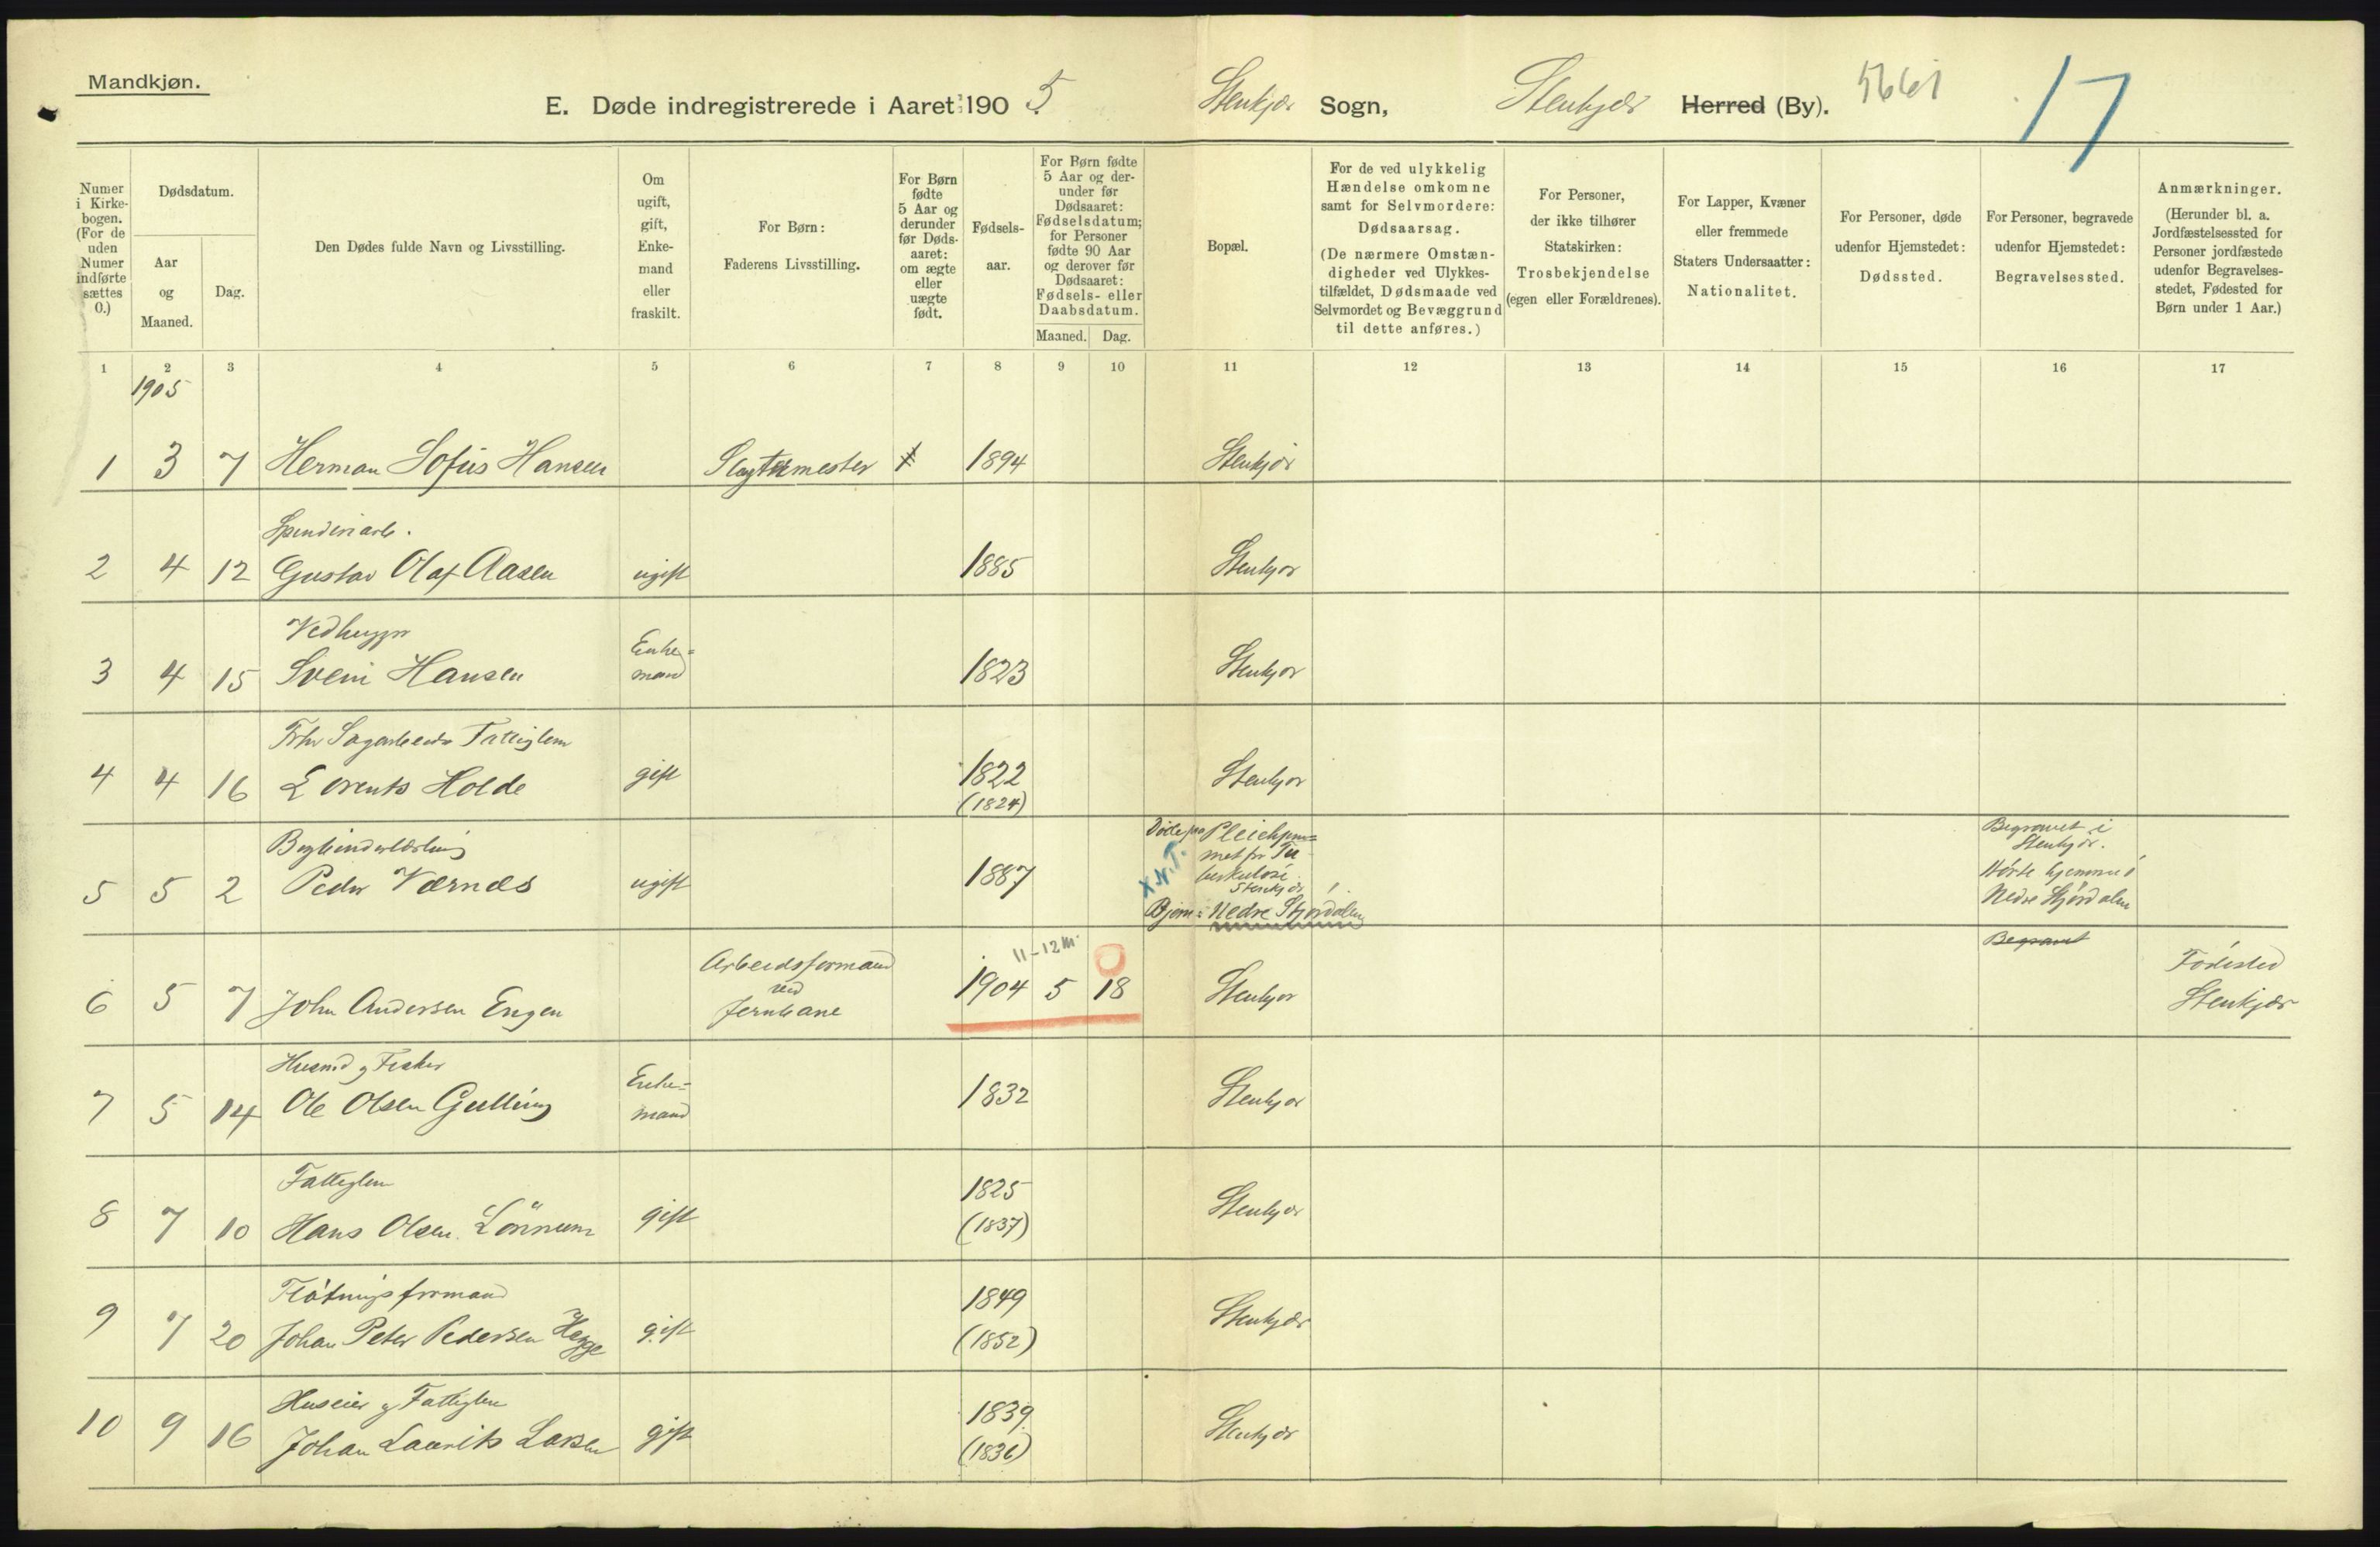 Mandkjøn.
E. Døde indregistrerede i Aaret 1905. Stenkjær Sogn, Stenkjær Herred (By). 5661 17
Numer i Kirkebogen. (For de uden Numer indførte sættes 0.)
Dødsdatum.
Aar og Maaned.
Dag.
Den Dødes fulde Navn og Livsstilling.
Om ugift, gift, Enkemand eller fraskilt.
For Børn: Faderens Livsstilling.
For Børn fødte 5 Aar og derunder før Dødsaaret: om ægte eller uægte født.
Fødselsaar.
For Børn fødte 5 Aar og derunder før Dødsaaret: Fødselsdatum; for Personer fødte 90 Aar og derover før Dødsaaret: Fødsels- eller Daabsdatum.
Maaned. Dag.
Bopæl.
For de ved ulykkelig Hændelse omkomne samt for Selvmordere: Dødsaarsag. (De nærmere Omstændigheder ved Ulykkestilfældet, Dødsmaade ved Selvmordet og Bevæggrund til dette anføres.)
For Personer, der ikke tilhører Statskirken: Trosbekjendelse (egen eller Forældrenes).
For Lapper, Kvæner eller fremmede Staters Undersaatter: Nationalitet.
For Personer, døde udenfor Hjemstedet: Dødssted.
For Personer, begravede udenfor Hjemstedet: Begravelsessted.
Anmærkninger. (Herunder bl. a. Jordfæstelsessted for Personer jordfæstede udenfor Begravelsesstedet, Fødested for Børn under 1 Aar.)
1 2 3 4 5 6 7 8 9 10 11 12 13 14 15 16 17
1905
1 3 7 Herman Sofus Hansen Slagtermester 1894 Stenkjær
Spinderiarb.
2 4 12 Gustav Olaf Aasen ugift 1885 Stenkjær
Vedhugger
3 4 15 Svein Hansen Enkemand 1823 Stenkjær
Sagarbeider Fattiglem
4 4 16 Lorents Holde gift 1822 (1824) Stenkjær
Bogbinderlærling
5 5 2 Peder Værnes ugift 1887
Døde paa Pleiehjemmet for Tuberkuløse Stenkjær
Hjem: Nedre Stjørdalen
Begravet i Stenkjær.
Hørte hjemme i Nedre Stjørdalen
Begravet
11-12 m.
6 5 7 John Andersen Engen Arbeidsformand ved Jernbane 1904 5 18 Stenkjær Fødested Stenkjær
Husmd og Fisker
7 5 14 Ole Olsen Gulling Enkemand 1832 Stenkjær
Fattiglem
8 7 10 Hans Olsen Lønnum gift 1825 (1837) Stenkjær
Fløtningsformand
9 7 20 Johan Peter Pedersen Hegge gift 1849 (1852) Stenkjær
Huseier og Fattiglem
10 9 16 Johan Laurits Larsen gift 1839 (1836) Stenkjær